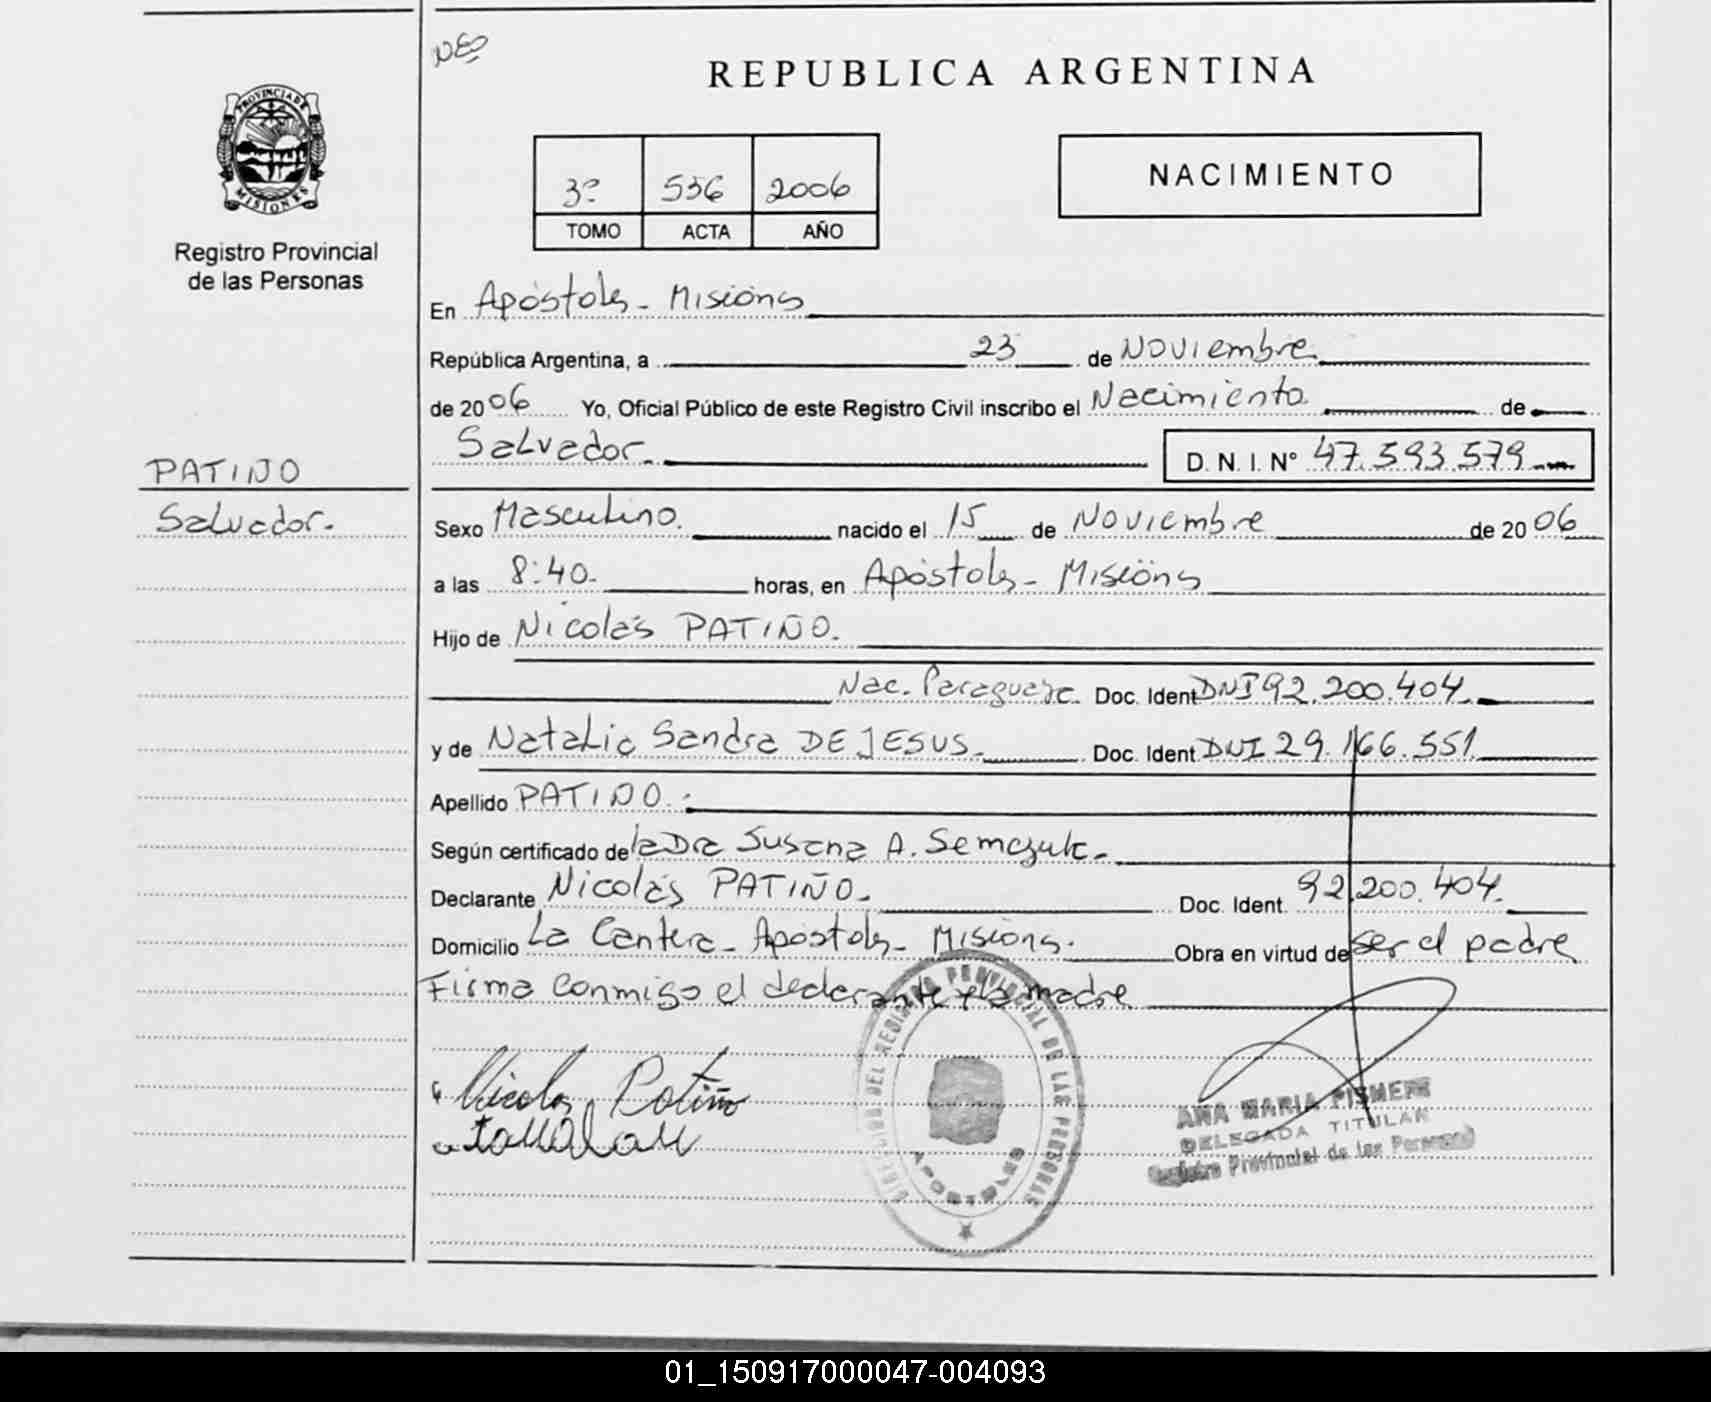 NEO
REPUBLICA ARGENTINA
PROVINCIA DE MISIONES
Registro Provincial
de las Personas
3º 556 2006
TOMO ACTA AÑO
NACIMIENTO
En Apóstoles - Misiones
República Argentina, a 23 de Noviembre
de 2006 Yo, Oficial Público de este Registro Civil inscribo el Nacimiento de
Salvador. D. N. I. Nº 47.593.579
PATIÑO
Salvador.
Sexo Masculino. nacido el 15 de Noviembre de 2006
a las 8:40. horas, en Apóstoles - Misiones
Hijo de Nicolás PATIÑO.
Nac. Paraguaya. Doc. Ident DNI 92.200.404.
y de Natalia Sandra DE JESUS. Doc. Ident DNI 29.166.551
Apellido PATIÑO.
Según certificado de la Dra Susana A. Semczuk.
Declarante Nicolás PATIÑO. Doc. Ident. 92.200.404.
Domicilio La Cantera - Apóstoles - Misiones. Obra en virtud de ser el padre
Firma conmigo el declarante y la madre
Nicolas Patiño
DIRECCION DEL REGISTRO PROVINCIAL DE LAS PERSONAS
APOSTOLES
ANA MARIA
DELEGADA TITULAR
Registro Provincial de las Personas
01_150917000047-004093